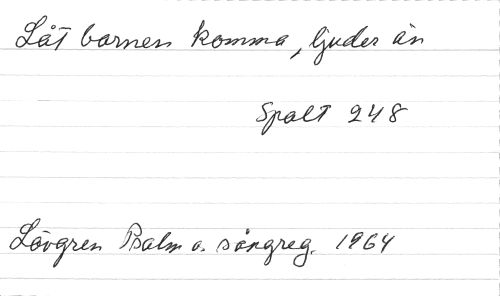 Låt barnen komma, ljuder än
Spalt 248
Lövgren Psalm o. sångreg. 1964